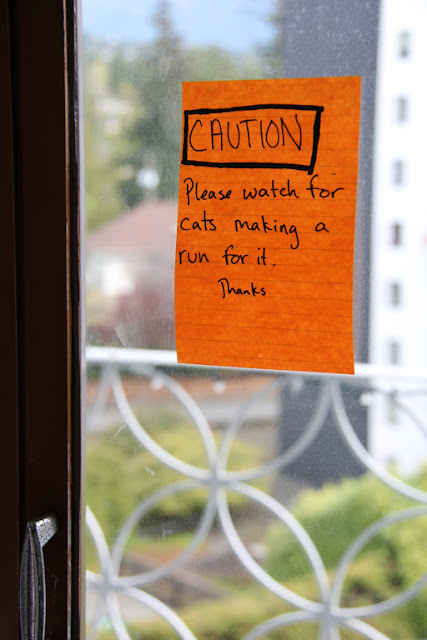 CAUTION
Please watch for
cats making a
run for it.
Thanks